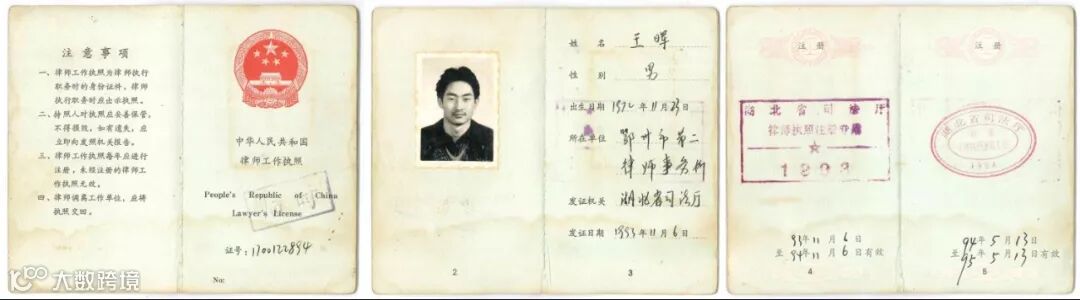 注意事项
一、律师工作执照为律师执行
职务时的身份证件。律师
执行职务时应出示执照。
二、持照人对执照应妥善保管,
不得损毁,如有遗失,应
立即向发照机关报告。
三、律师工作执照每年应进行
注册,未经注册的律师工
作执照无效。
四、律师调离工作单位,应将
执照交回。
中华人民共和国
律师工作执照
People's Republic of China
Lawyer's License
证号:1700122894
No:
姓 名 王晖
性 别 男
出生日期 1972年11月23日
所在单位 鄂州市第二
律师事务所
发证机关 湖北省司法厅
发证日期 1993年11月6日
2
3
注 册
湖北省司法厅
律师执照注册专用
1993
93年11月6日
至94年11月6日有效
4
注 册
湖北省司法厅
1994
94年5月13日
至95年5月13日有效
5
大数跨境